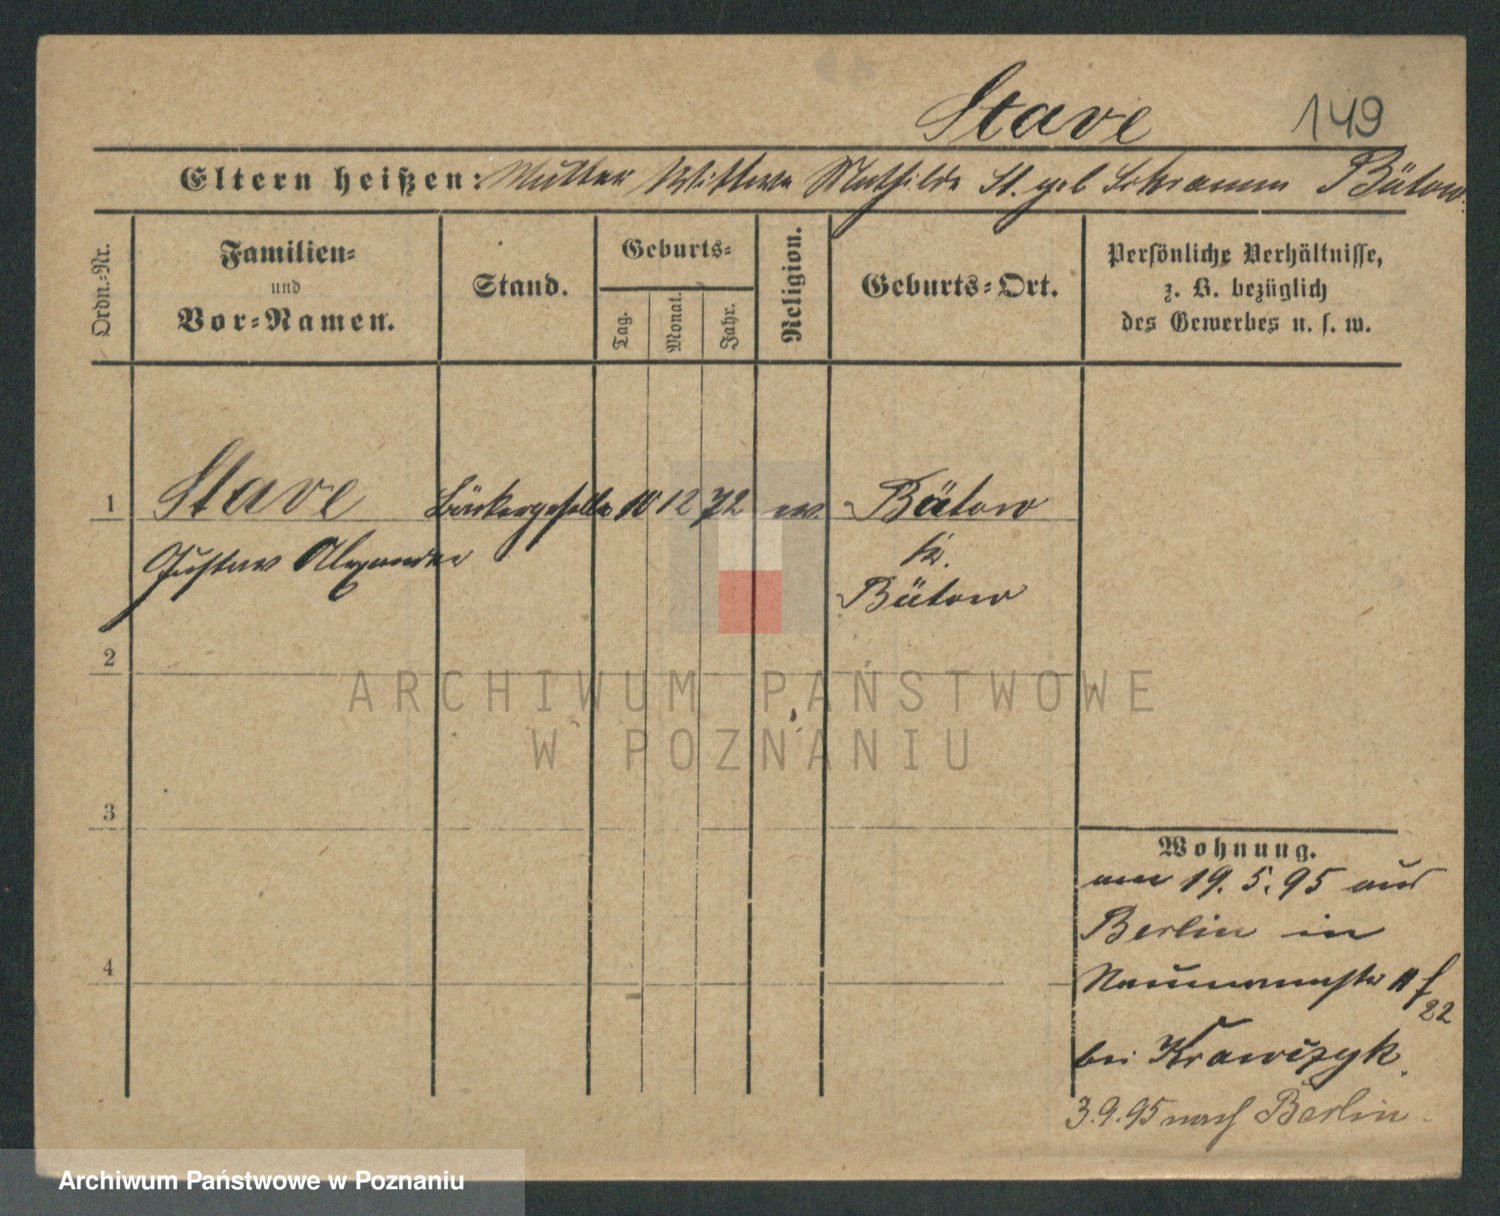 Stave 149
Eltern heißen: Mutter Wittwe Mathilde St. geb Schramm Bütow.
Ordn.-Nr.
Familien-
und
Vor-Namen.
Stand.
Geburts-
Tag.
Monat.
Jahr.
Religion.
Geburts-Ort.
Persönliche Verhältnisse,
z. B. bezüglich
des Gewerbes u. s. w.
1 Stave Bäckergeselle 10 12 72 ev. Bütow
Gustav Alexander
Kr.
Bütow
2
ARCHIWUM PAŃSTWOWE
W POZNANIU
3
Wohnung.
am 19.5.95 aus
Berlin in
4
bei Krawczyk.
3.9.95 nach Berlin.
Archiwum Państwowe w Poznaniu